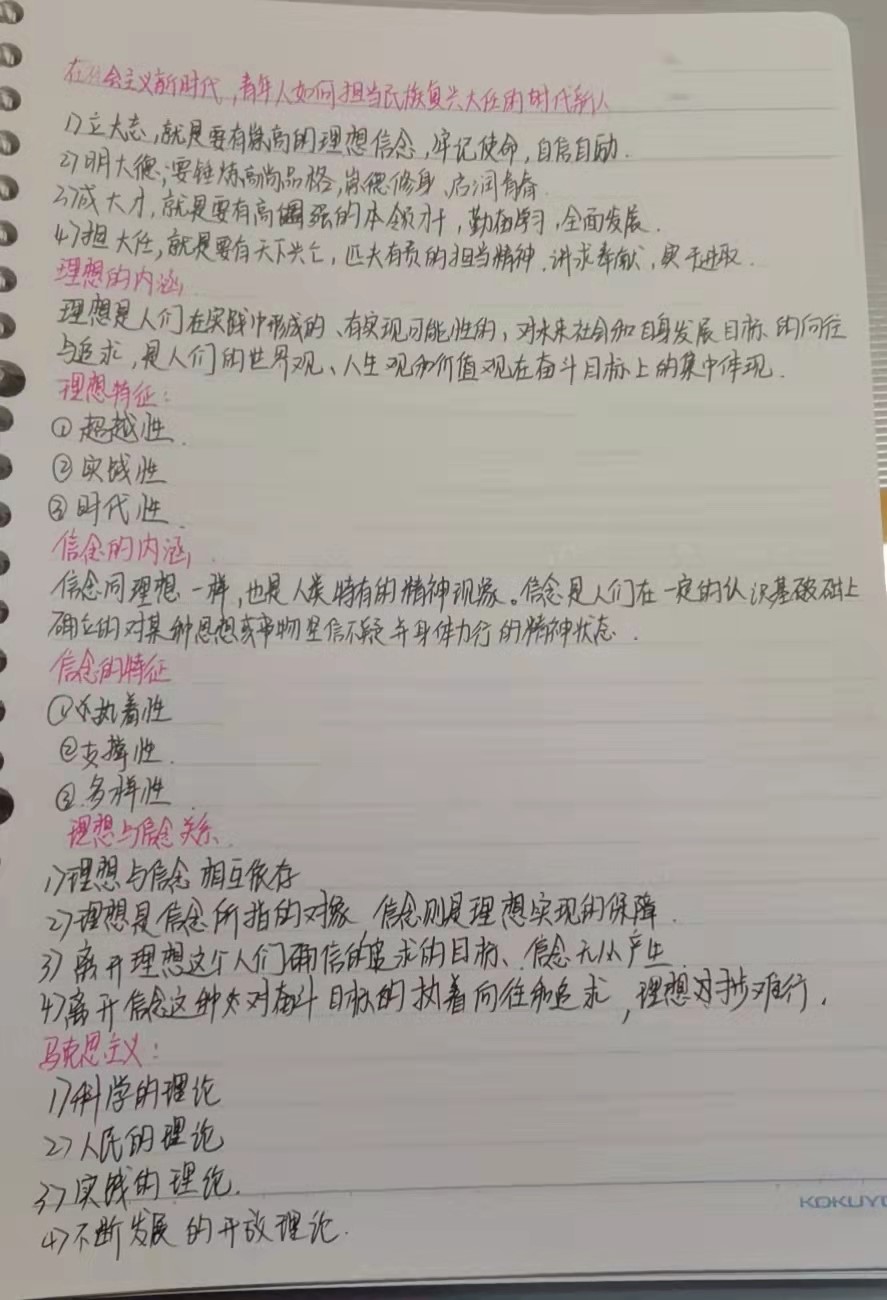 在社会主义新时代,青年人如何担当民族复兴大任的时代新人
1)立大志,就是要有崇高的理想信念,牢记使命,自信自励.
2)明大德;要锤炼高尚品格,崇德修身,启润青春.
3)成大才,就是要有高强的本领才干,勤奋学习,全面发展.
4)担大任,就是要有天下兴亡,匹夫有责的担当精神.讲求奉献,实干进取.
理想的内涵
理想是人们在实践中形成的、有实现可能性的,对未来社会和自身发展目标的向往
与追求,是人们的世界观、人生观和价值观在奋斗目标上的集中体现.
理想特征:
①超越性.
②实践性
③时代性.
信念的内涵
信念同理想一样,也是人类特有的精神现象。信念是人们在一定的认识基础上
确立的对某种思想或事物坚信不疑并身体力行的精神状态.
信念的特征
①执着性
②支撑性.
③多样性.
理想与信念关系.
1)理想与信念相互依存
2)理想是信念所指的对象 信念则是理想实现的保障.
3)离开理想这个人们确信的追求的目标、信念无从产生.
4)离开信念这种对奋斗目标的执着向往和追求,理想寸步难行.
马克思主义:
1)科学的理论
2)人民的理论
3)实践的理论.
4)不断发展的开放理论.
KOKUYO